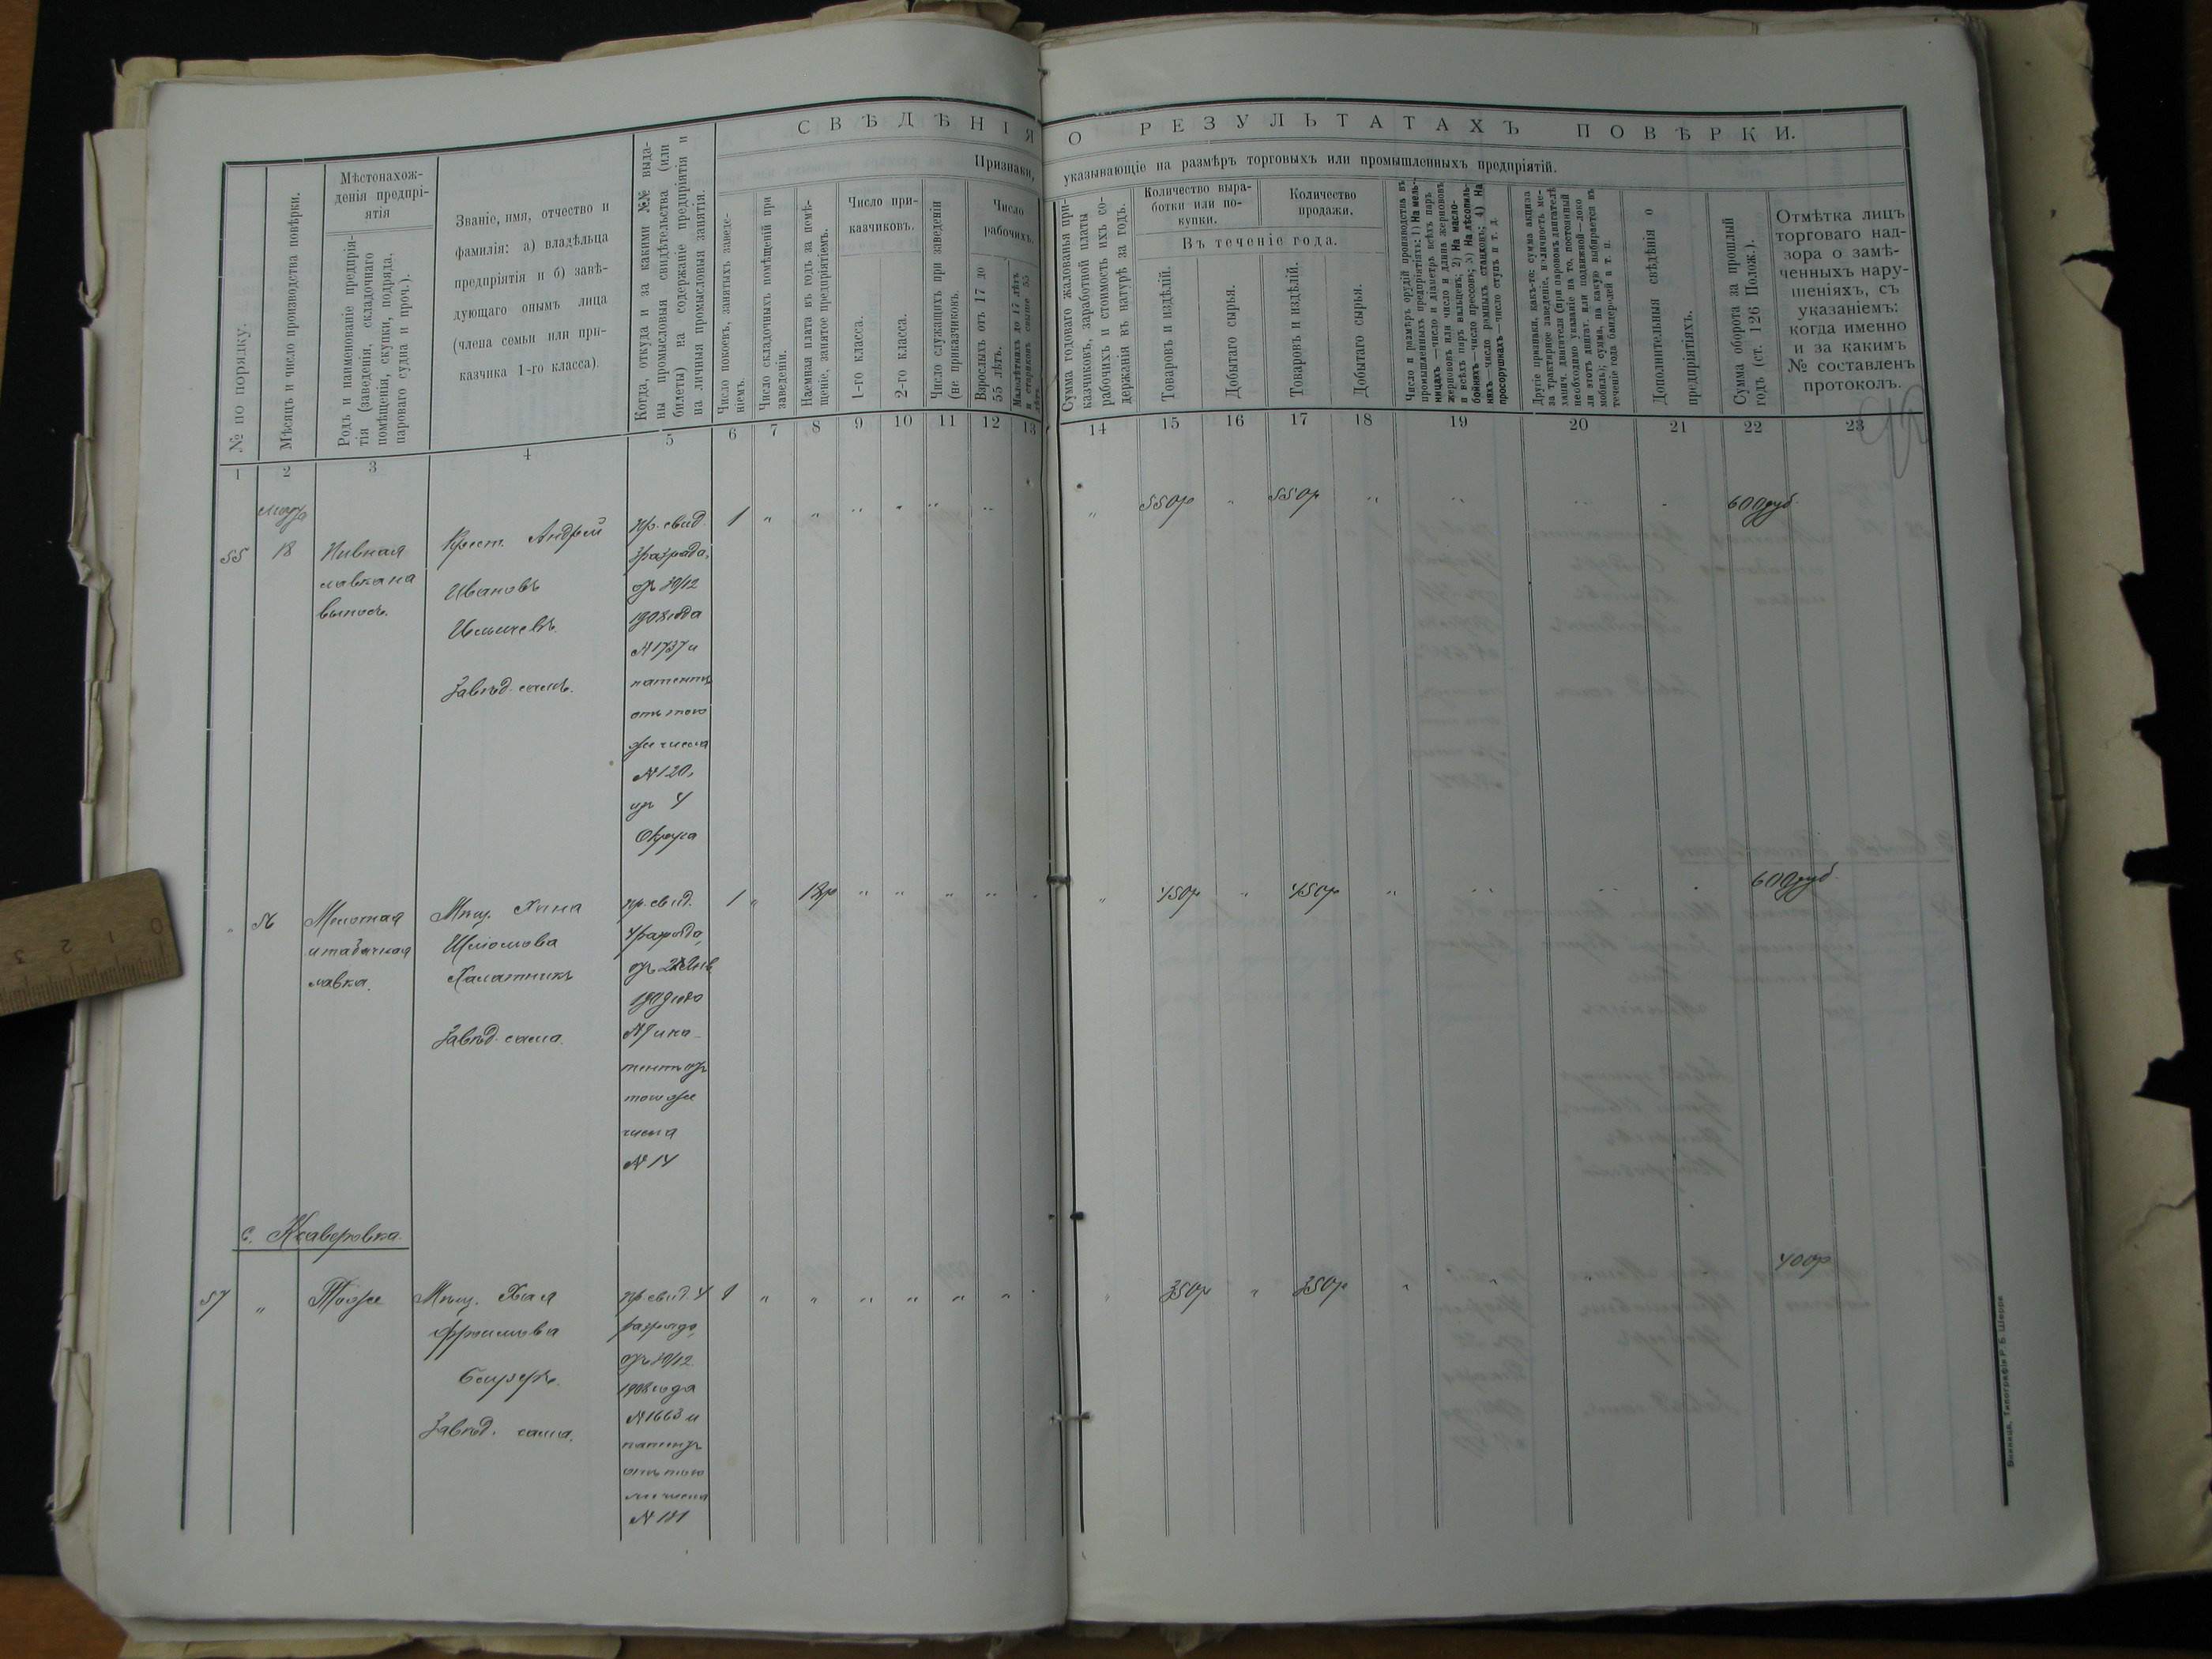 СВѢДѢНІЯ О РЕЗУЛЬТАТАХЪ ПОВѢРКИ.
Признаки, указывающіе на размѣръ торговыхъ или промышленныхъ предпріятій.
№ по порядку.
Мѣсяцъ и число производства повѣрки.
Мѣстонахож-
денія предпрі-
ятія
Родъ и наименованіе предпрія-
тія (заведенія, складочнаго
помѣщенія, скупки, подряда,
пароваго судна и проч.).
Званіе, имя, отчество и
фамилія: а) владѣльца
предпріятія и б) завѣ-
дующаго онымъ лица
(члена семьи или при-
казчика 1-го класса).
Когда, откуда и за какими №№ выда-
ны промысловыя свидѣтельства (или
билеты) на содержаніе предпріятія и
на личныя промысловыя занятія.
Число покоевъ, занятыхъ заведе-
ніемъ.
Число складочныхъ помѣщеній при
заведеніи.
Наемная плата въ годъ за помѣ-
щеніе, занятое предпріятіемъ.
Число при-
казчиковъ.
1-го класса.
2-го класса.
Число служащихъ при заведеніи
(не приказчиковъ).
Число
рабочихъ.
Взрослыхъ отъ 17 до
55 лѣтъ.
Малолѣтнихъ до 17 лѣтъ
и стариковъ свыше 55
лѣтъ.
Сумма годоваго жалованья при-
казчиковъ, заработной платы
рабочихъ и стоимость ихъ со-
держанія въ натурѣ за годъ.
Количество выра-
ботки или по-
купки.
Количество
продажи.
Въ теченіе года.
Товаровъ и издѣлій.
Добытаго сырья.
Товаровъ и издѣлій.
Добытаго сырья.
Число и размѣръ орудій производства въ
промышленныхъ предпріятіяхъ: 1) На мель-
ницахъ—число и діаметръ всѣхъ паръ
жернововъ или число и длина жернововъ
и всѣхъ паръ вальцевъ; 2) На масло-
бойняхъ—число прессовъ; 3) На лѣсопиль-
няхъ—число рамныхъ станковъ; 4) На
просорушкахъ—число ступъ и т. д.
Другіе признаки, какъ-то: сумма акциза
за трактирное заведеніе, наличность ме-
ханич. двигателя (при паровомъ двигателѣ
необходимо указаніе на то, постоянный
ли этотъ двигат. или подвижной—локо
мобиль); сумма, на какую выбирается въ
теченіе года бандеролей и т. п.
Дополнительныя свѣдѣнія о
предпріятіяхъ.
Сумма оборота за прошлый
годъ (ст. 126 Полож.).
Отмѣтка лицъ
торговаго над-
зора о замѣ-
ченныхъ нару-
шеніяхъ, съ
указаніемъ:
когда именно
и за какимъ
№ составленъ
протоколъ.
1 2 3 4 5 6 7 8 9 10 11 12 13 14 15 16 17 18 19 20 21 22 23
55 18 Пивная
лавка на
выносъ.
Крест. Андрей
Ивановъ
Завѣд. самъ.
пр. свид.
3 разряда,
отъ 30/12
1908 года
№ 1737 и
патентъ
отъ того
же числа
№ 120,
изъ 4
Округа
1 " " " " " " " 550р " 550р " " " " 600 руб.
" 56 Мелочная
и табачная
лавка.
Мѣщ. Хана
Шліомова
Халатникъ
Завѣд. сама.
пр. свид.
4 разряда,
1909 года
№ 7 и па-
тентъ отъ
того же
числа
№ 14
1 " 18р " " " " " " 450р " 450р " " " " 600 руб.
с. Ксаверовка.
57 " Тоже Мѣщ. Хая
Фроимова
Завѣд. сама.
пр. свид. 4
разряда,
отъ 30/12
1908 года
№ 1663 и
патентъ
отъ того
же числа
№ 181
1 " " " " " " " " 350р " 350р " " " 400р
Винница, Типографія Р. Б. Шерра